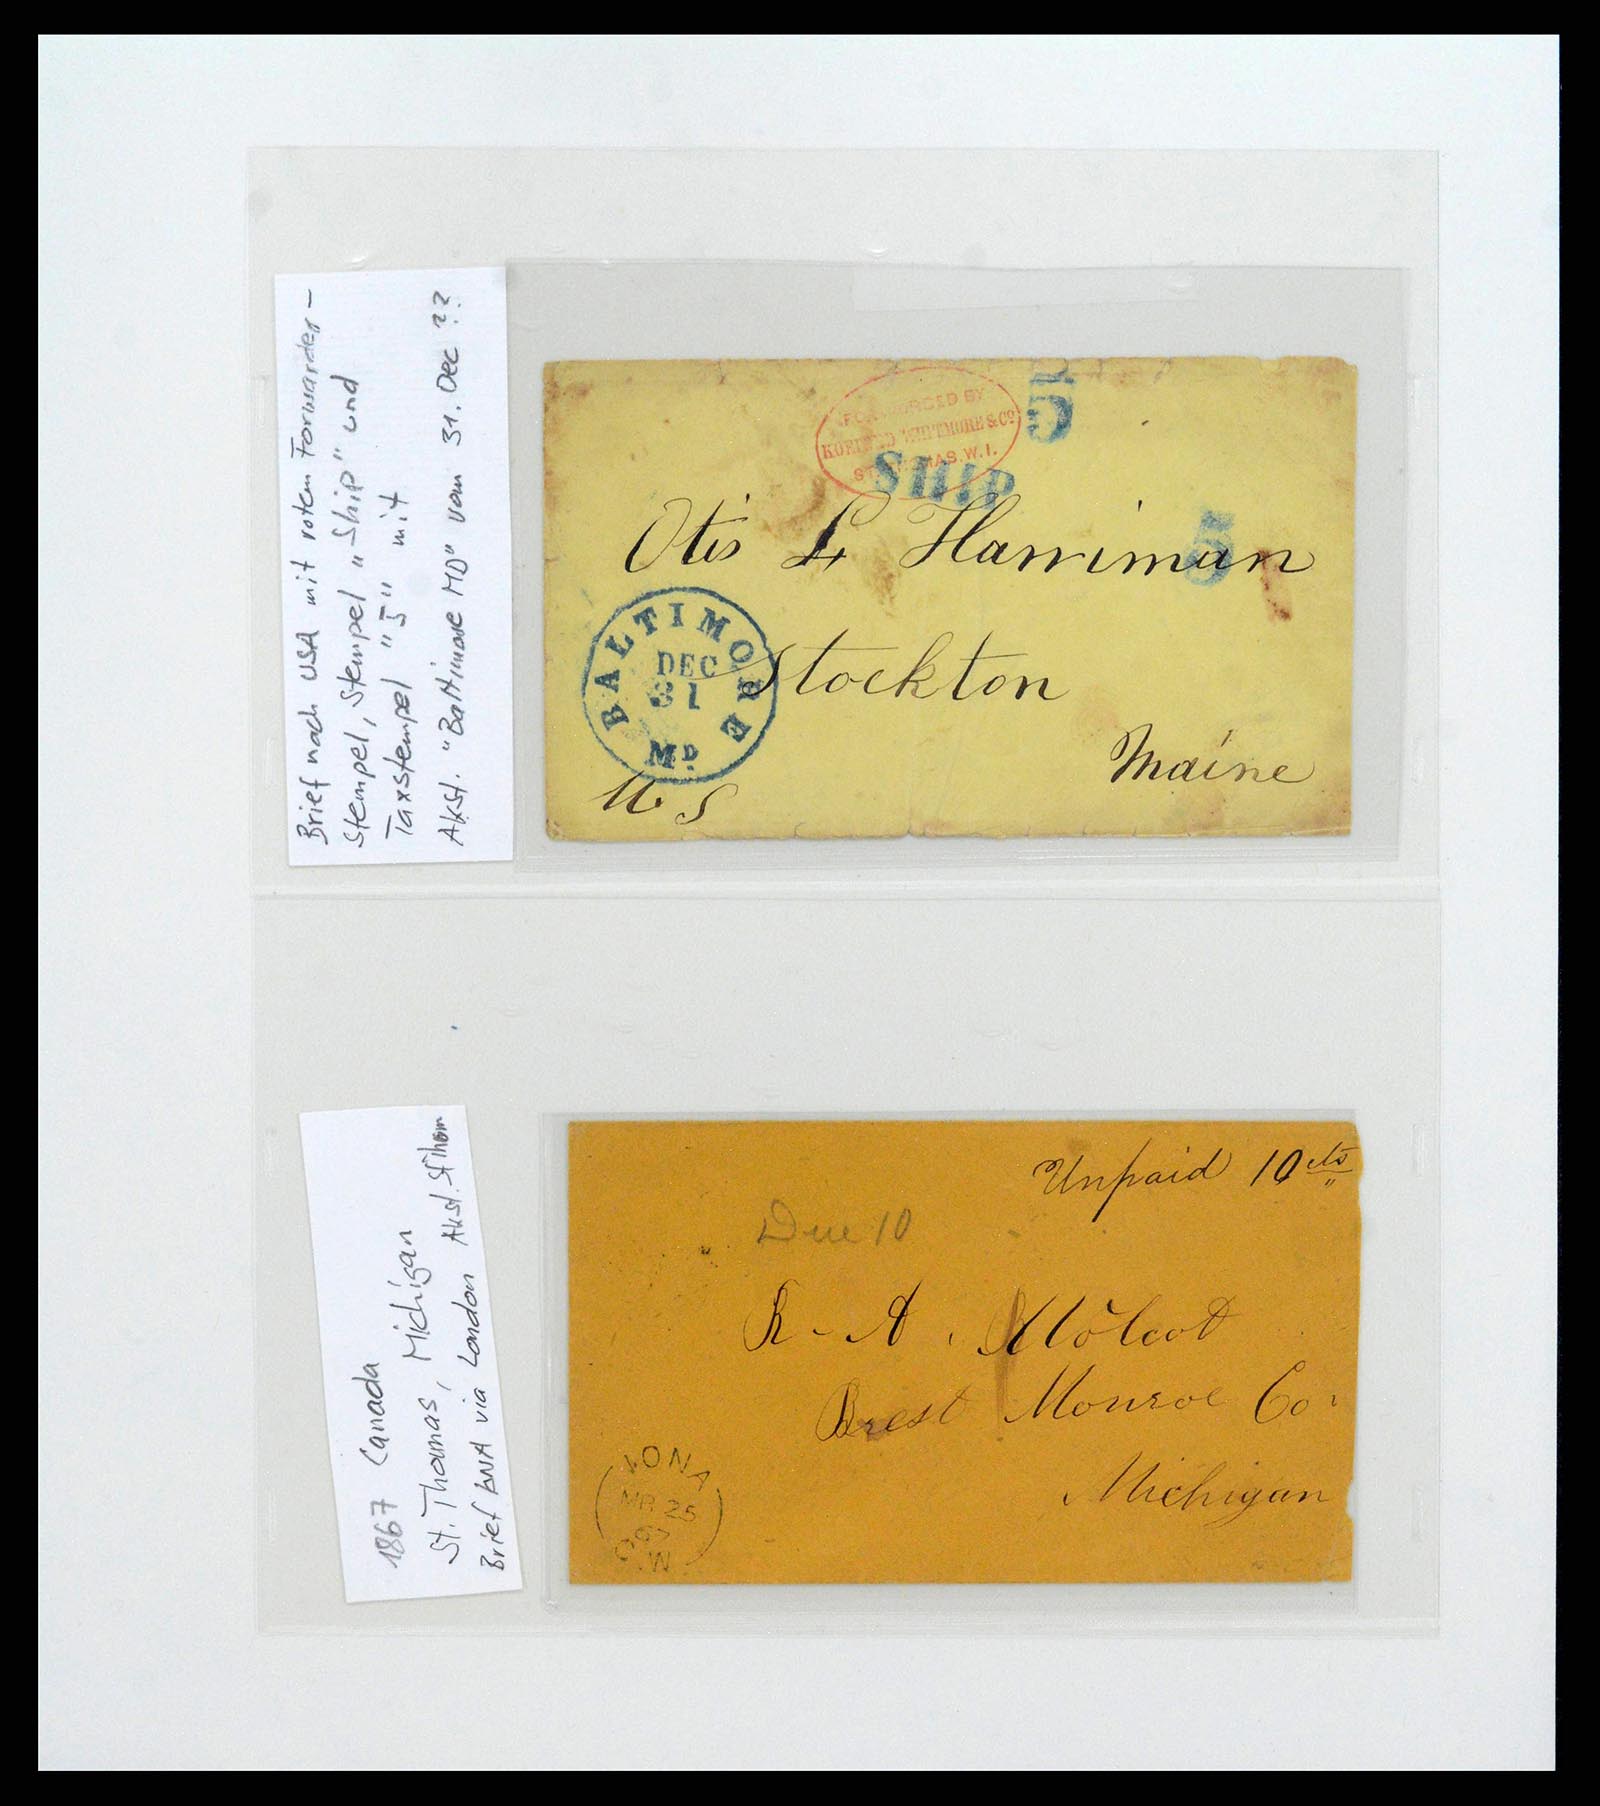 Brief nach USA mit rotem Forwarder-
Stempel, Stempel „Ship" und
Taxstempel "5" mit
Akst. "Baltimore MD" vom 31. Dec ??
5
FORWARDED BY
WHITMORE & Co
ST. THOMAS. W.I.
SHIP
5
Otis L Harriman
BALTIMORE
DEC
31
MD.
Stockton
Maine
U. S
1867 Canada
St. Thomas, Michigan
Brief BNA via London Akst. St Thom
Unpaid 10 cts
Due 10
R - A. Wolcot
Brest Monroe Co:
Michigan
IONA
MR 25
67
C.W